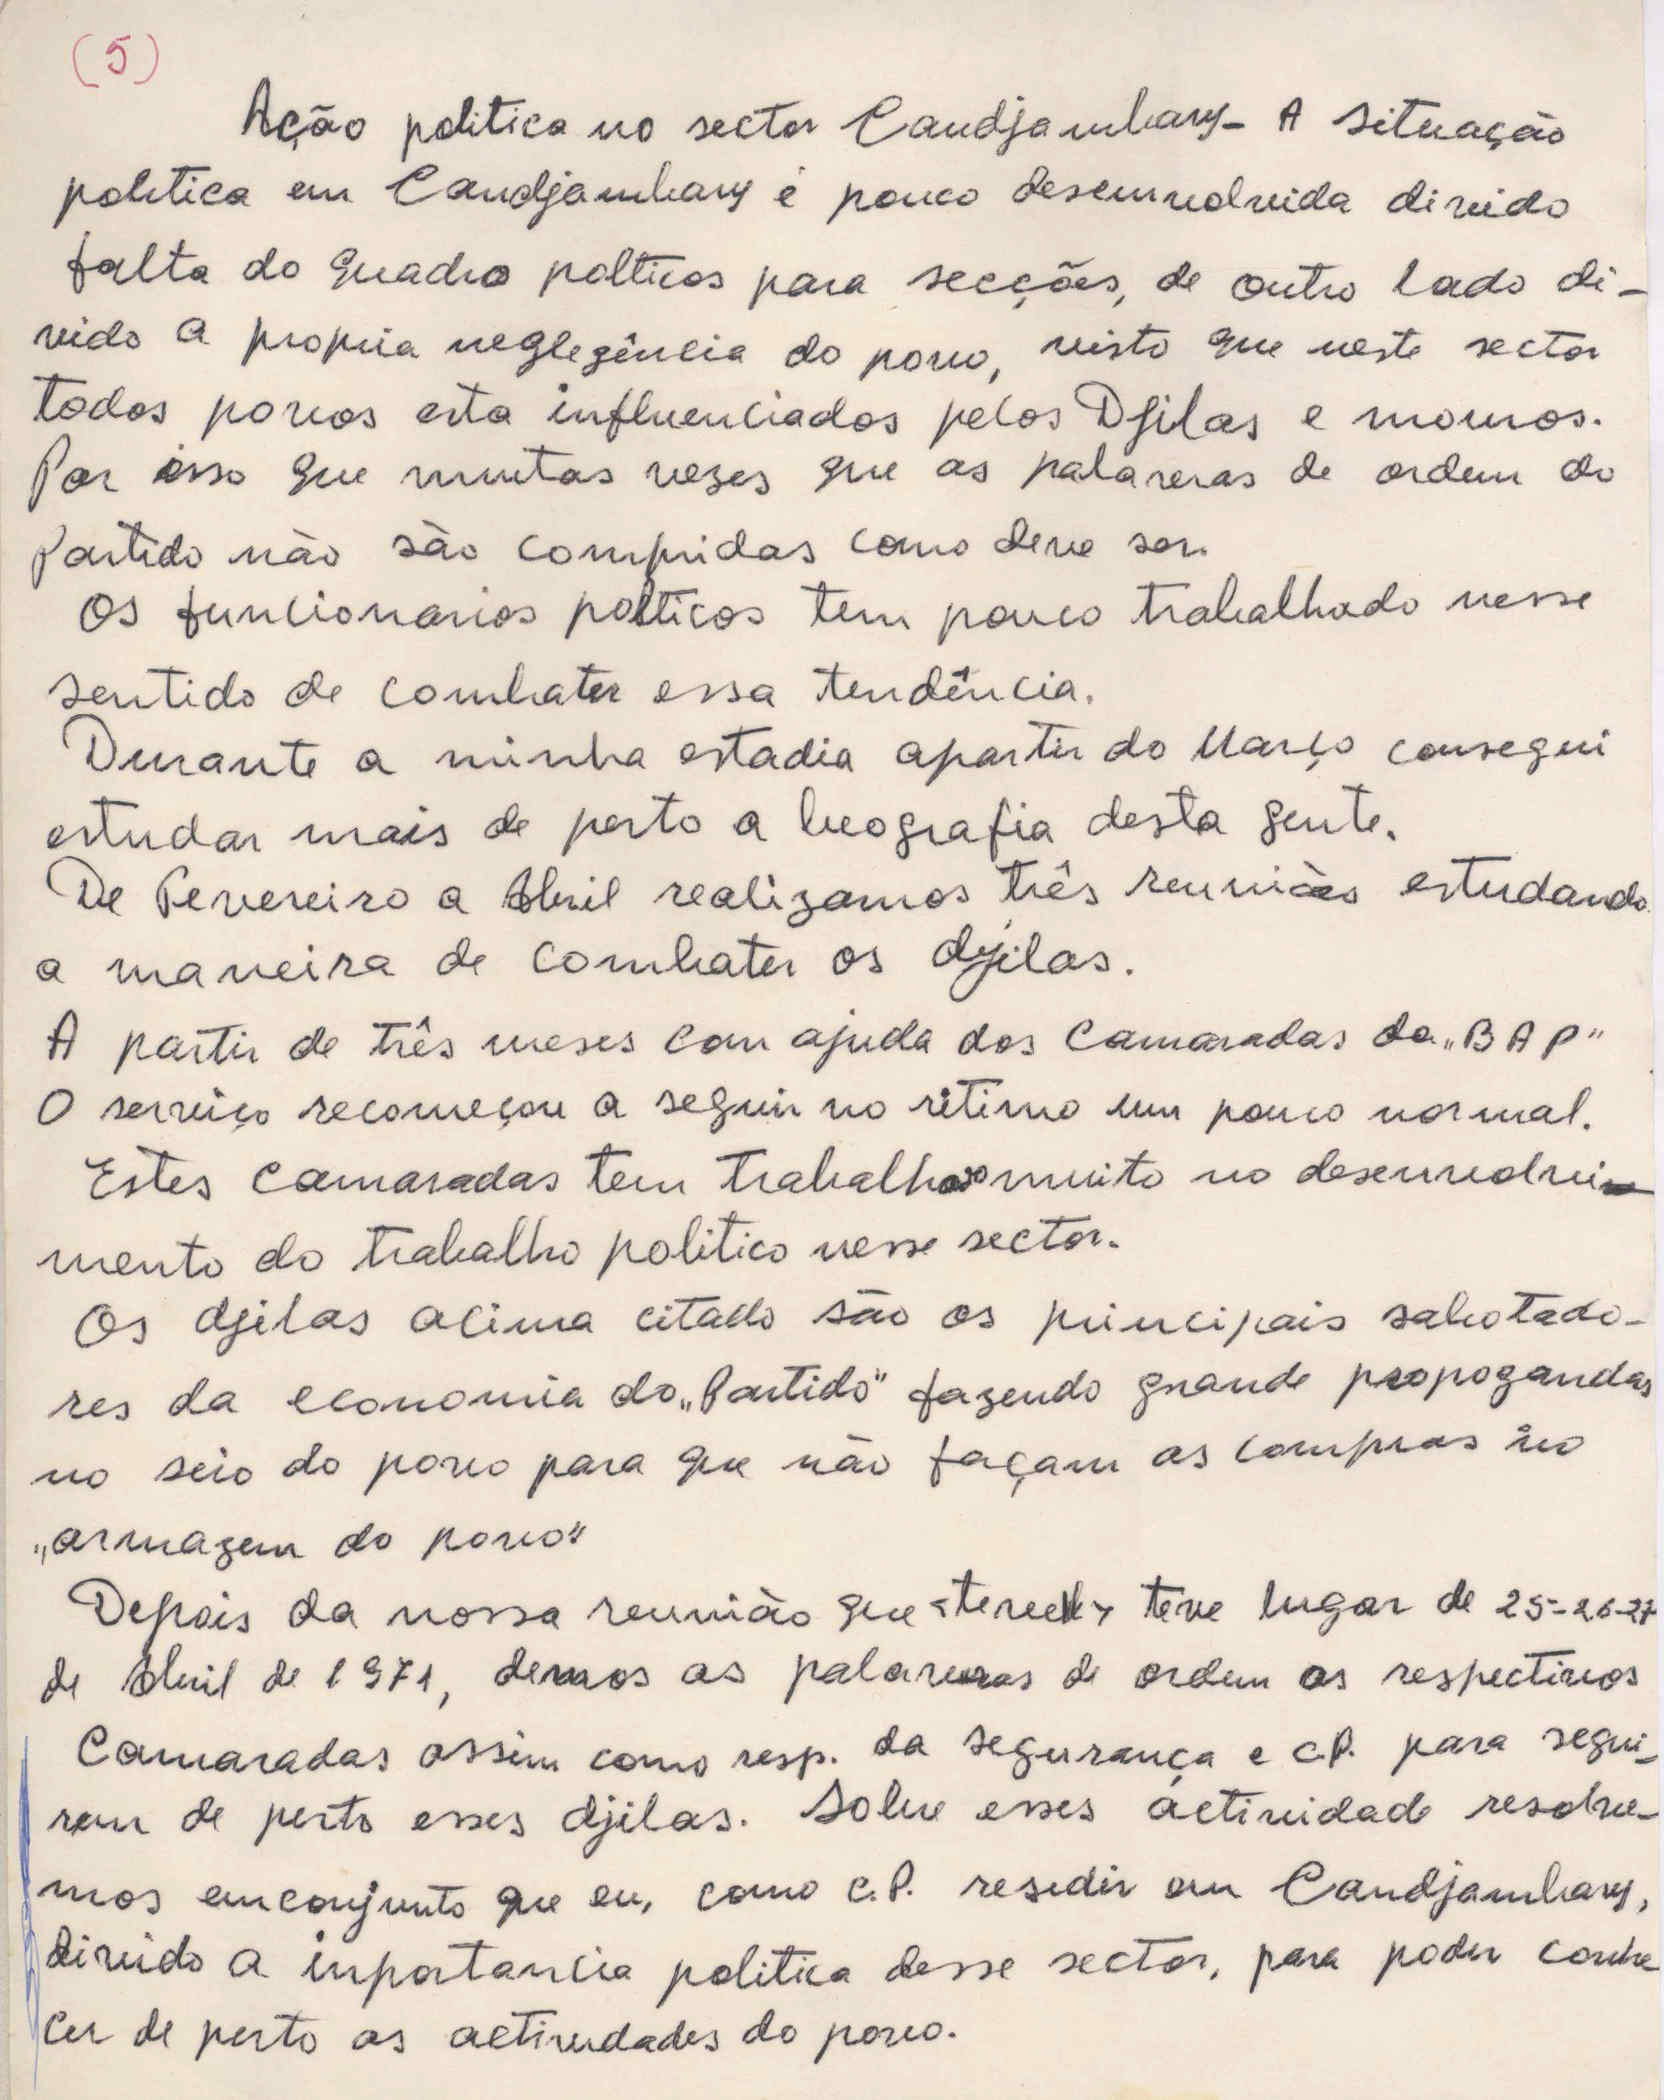 (5)
Ação politica no sector Candjambary - A situação
politica em Candjambary é pouco desemvolvida divido
falta do quadro polticos para secções, de outro lado di-
vido a propria neglegência do povo, visto que neste sector
todos povos esta influenciados pelos Djilas e mouros.
Por isso que muitas vezes que as palavras de ordem do
Partido não são compridas como deve ser.
Os funcionarios polticos tem pouco trabalhado nesse
sentido de combater essa tendência.
Durante a minha estadia apartir do Março consegui
estudar mais de perto a beografia desta gente.
De Fevereiro a Abril realizamos três reuniões estudando
a maneira de combater os djilas.
A partir de três meses com ajuda dos Camaradas da „BAP"
O serviço recomeçou a seguir no ritimo um pouco normal.
Estes camaradas tem trabalhado muito no desenvolvi-
mento do trabalho politico nesse sector.
Os djilas acima citado são os principais sabotado-
res da economia do „Partido" fazendo grande propogandas
no seio do povo para que não façam as compras no
„armazem do povo"
Depois da nossa reunião que teve lugar de 25-26-27
de Abril de 1971, demos as palavras de ordem os respectivos
Camaradas assim como resp. da segurança e C.P. para segui-
rem de perto esses djilas. Sobre esses actividade resolve-
mos emconjunto que eu, como C.P. residir em Candjambary,
divido a inportancia politica desse sector, para poder conhe
cer de perto as actividades do povo.